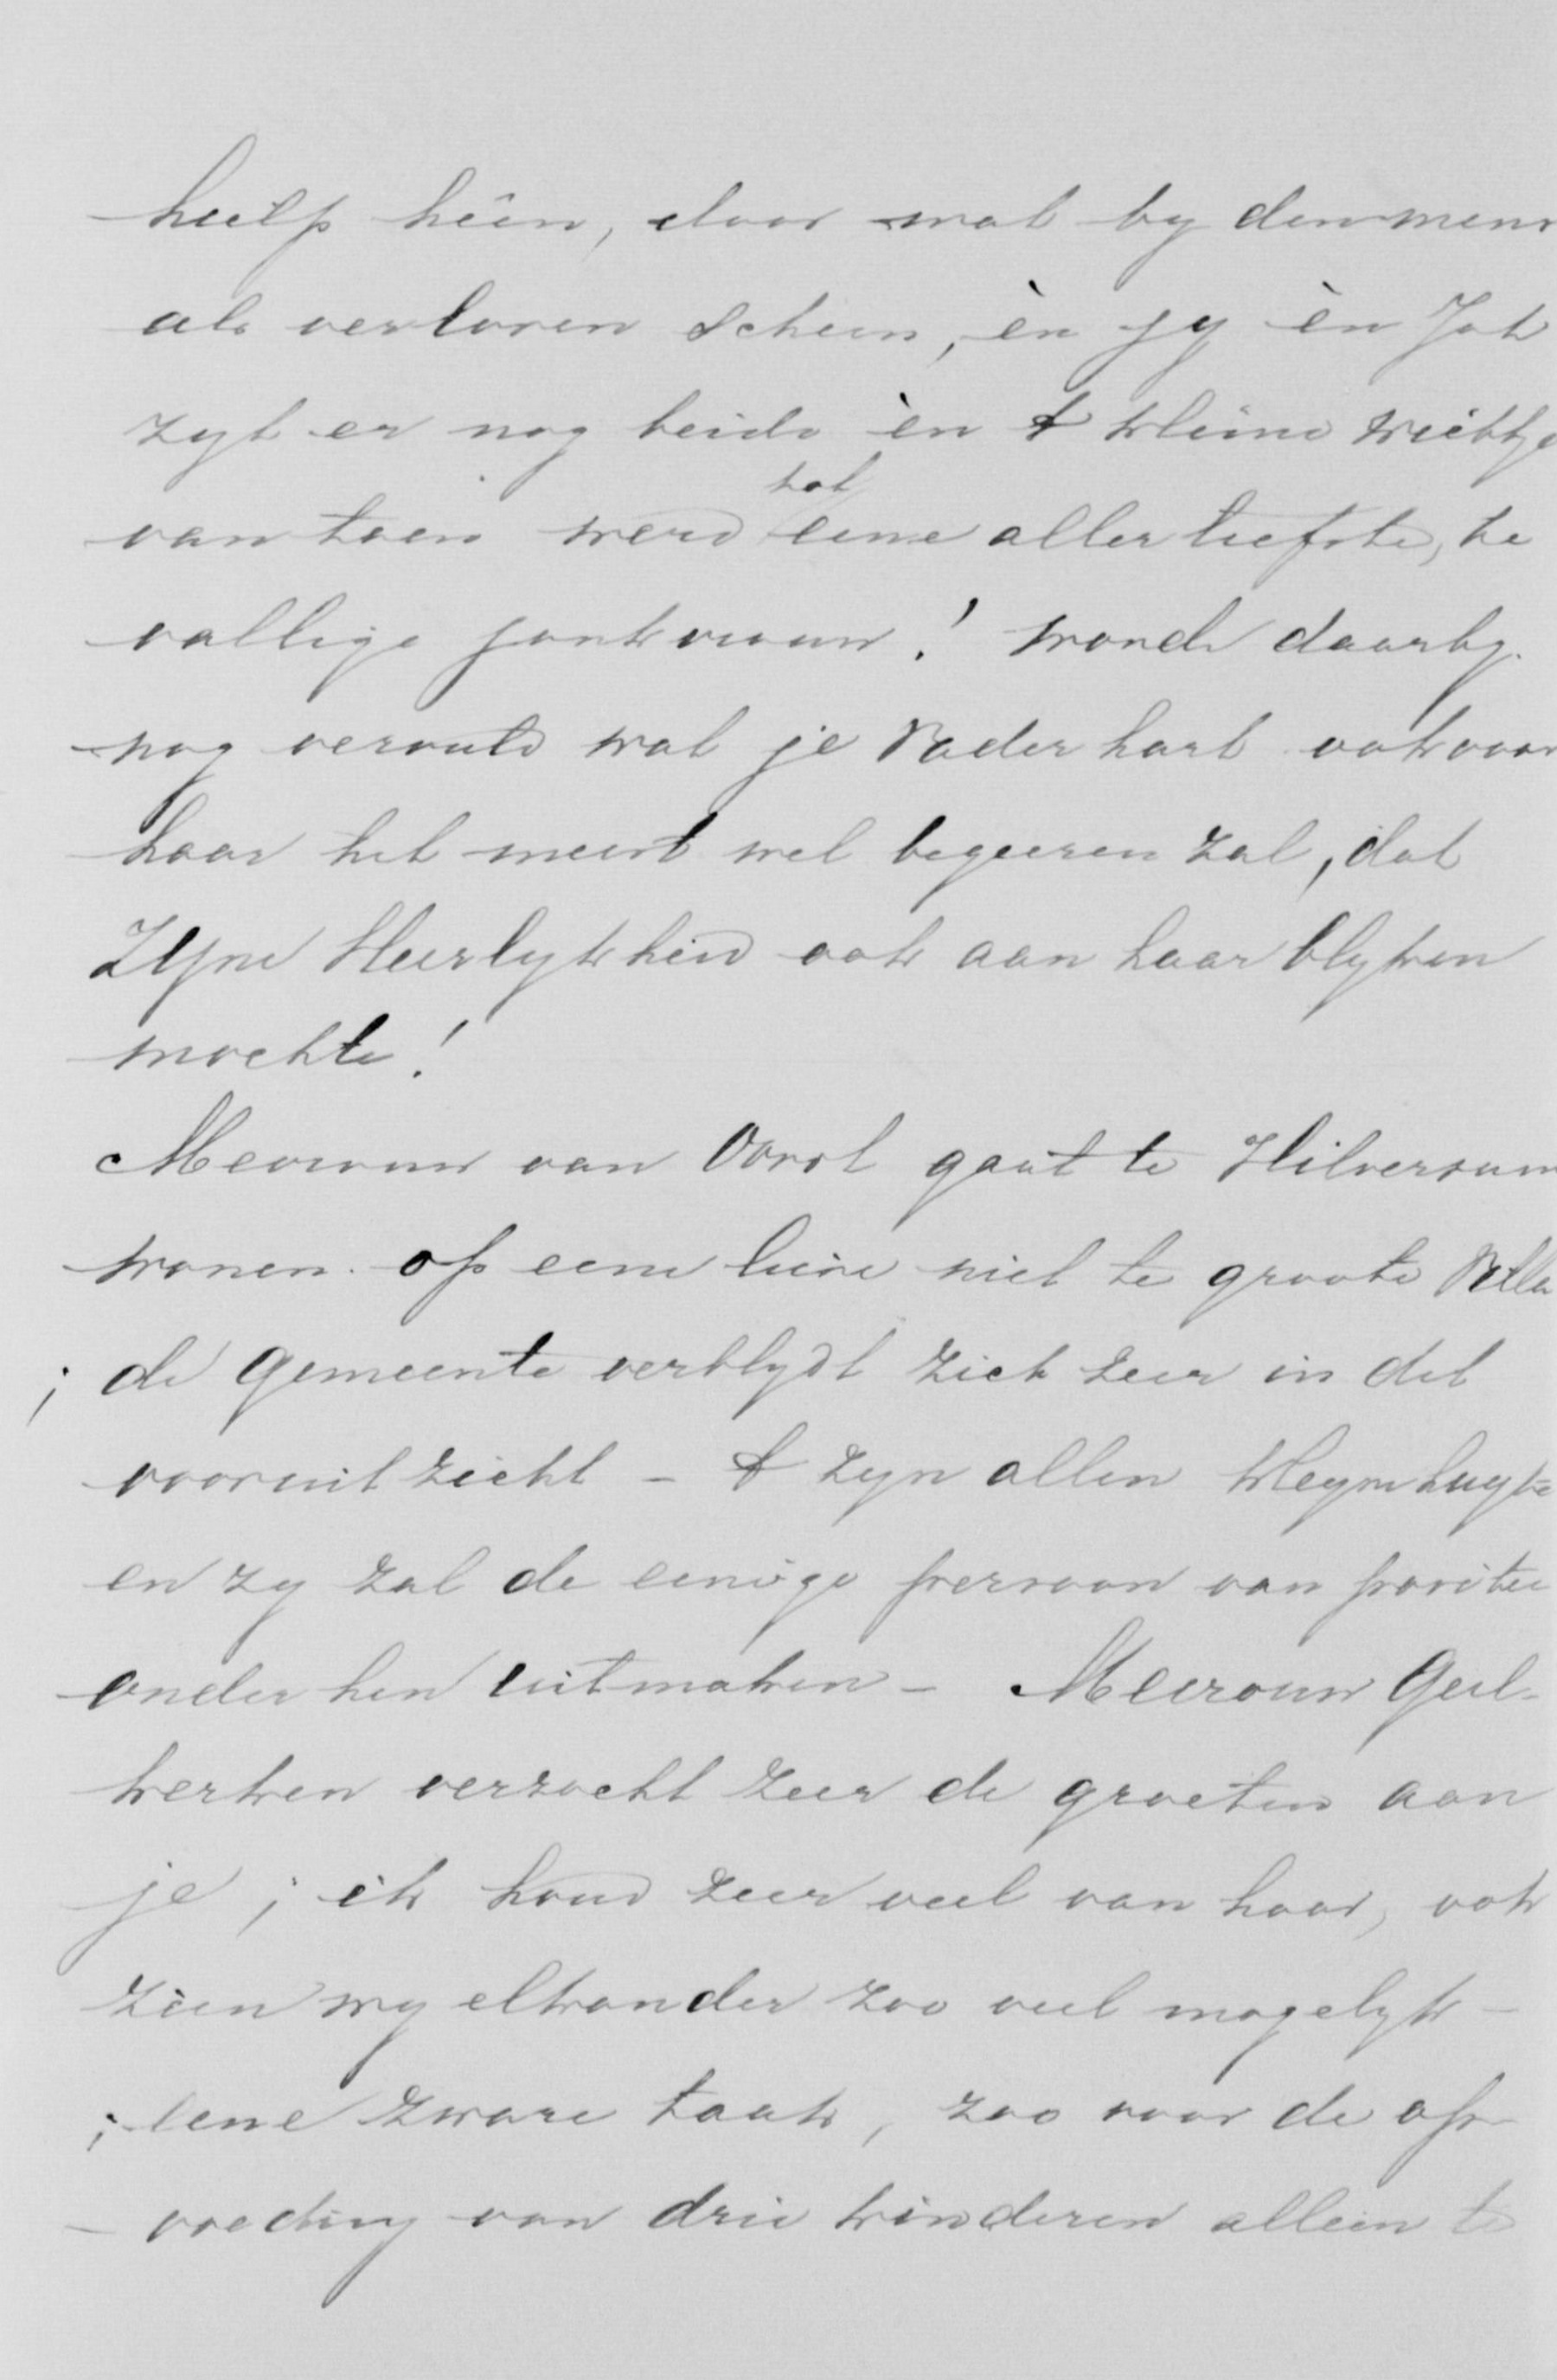 hielp heên, door wat by den mens
als verloren scheen, èn jy èn Joh
zyt er nog beide èn 't kleine wichtje
van toen werd tot eene allerliefste, be
vallige jonkvrouw! worde daarby
nog vervuld wat je Vaderhart ook voor
haar het meest wel begeeren zal, dat
Zyne Heerlykheid ook aan haar blyken
mochte!
Mevrouw van Oord gaat te Hilversum
wonen op eene lieve niet te groote Villa
; de Gemeente verblydt zich zeer in dit
vooruitzicht - 't zyn allen kleyne luyd
en zy zal de eenige persoon van positie
onder hen uitmaken - Mevrouw Geel-
kerken verzocht zeer de groeten aan
je; ik houd zeer veel van haar, ook
zien wy elkander zoo veel mogelyk -
; eene zware taak, zoo voor de op-
- voeding van drie kinderen alleen te